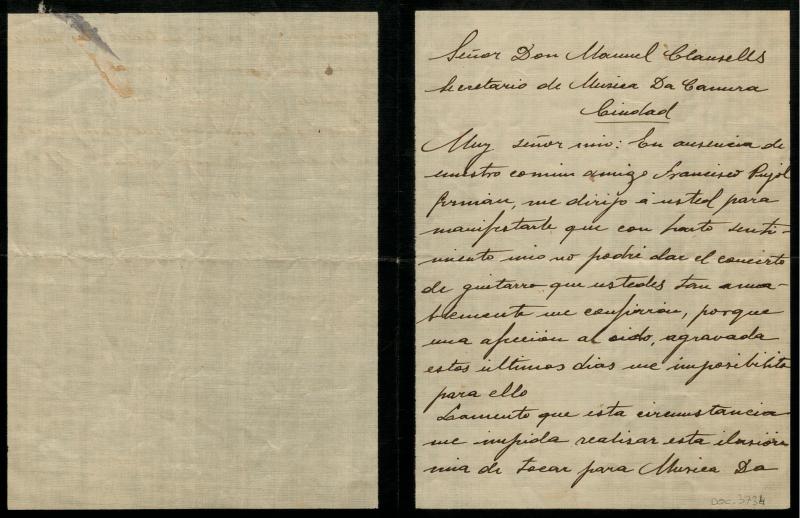 Señor Don Manuel Clausells
Secretario de Musica Da Camera
Ciudad
Muy señor mio: En ausencia de
nuestro comun amigo Francisco Pujol
German, me dirijo á usted para
manifestarle que con harto senti-
miento mio no podré dar el concierto
de guitarra que ustedes tan ama-
blemente me confiaron, porque
una afección al oido, agravada
estos últimos dias me imposibilita
para ello
Lamento que esta circumstancia
me impida realizar esta ilusión
mia de tocar para Musica Da
DOC-3734